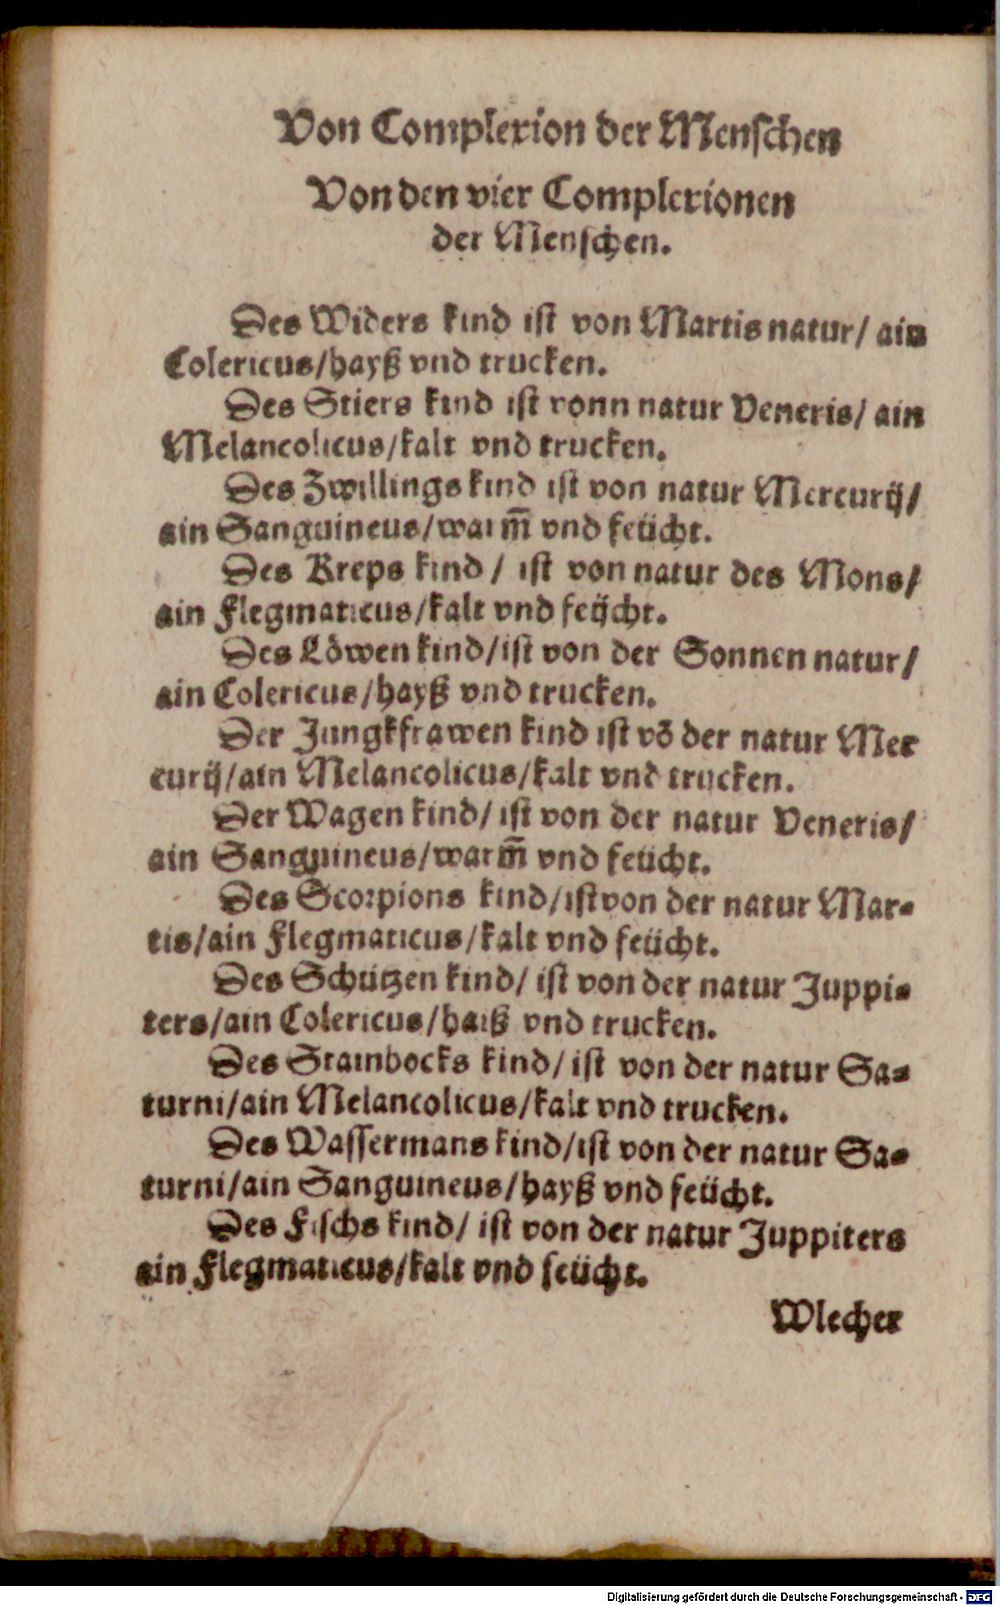 Von Complexion der Menschen
Von den vier Complexionen
der Menschen.
Des Widers kind ist von Martis natur/ ain
Colericus/hayß vnd trucken.
Des Stiers kind ist vonn natur Veneris/ ain
Melancolicus/kalt vnd trucken.
Des Zwillings kind ist von natur Mercurij/
ain Sanguineus/warm̄ vnd feücht.
Des Kreps kind / ist von natur des Mons/
ain Flegmaticus/kalt vnd feÿcht.
Des Löwen kind/ist von der Sonnen natur/
ain Colericus/hayß vnd trucken.
Der Jungkfrawen kind ist võ der natur Mer
curij/ain Melancolicus/kalt vnd trucken.
Der Wagen kind/ ist von der natur Veneris/
ain Sanguineus/warm̄ vnd feücht.
Des Scorpions kind/ist von der natur Mar-
tis/ain Flegmaticus/kalt vnd feücht.
Des Schützen kind/ ist von der natur Juppi-
ters/ain Colericus/haiß vnd trucken.
Des Stainbocks kind/ ist von der natur Sa-
turni/ain Melancolicus/kalt vnd trucken.
Des Wassermans kind/ist von der natur Sa-
turni/ain Sanguineus/hayß vnd feücht.
Des Fischs kind/ ist von der natur Juppiters
ain Flegmaticus/kalt vnd feücht.
Wlecher
Digitalisierung gefördert durch die Deutsche Forschungsgemeinschaft - DFG